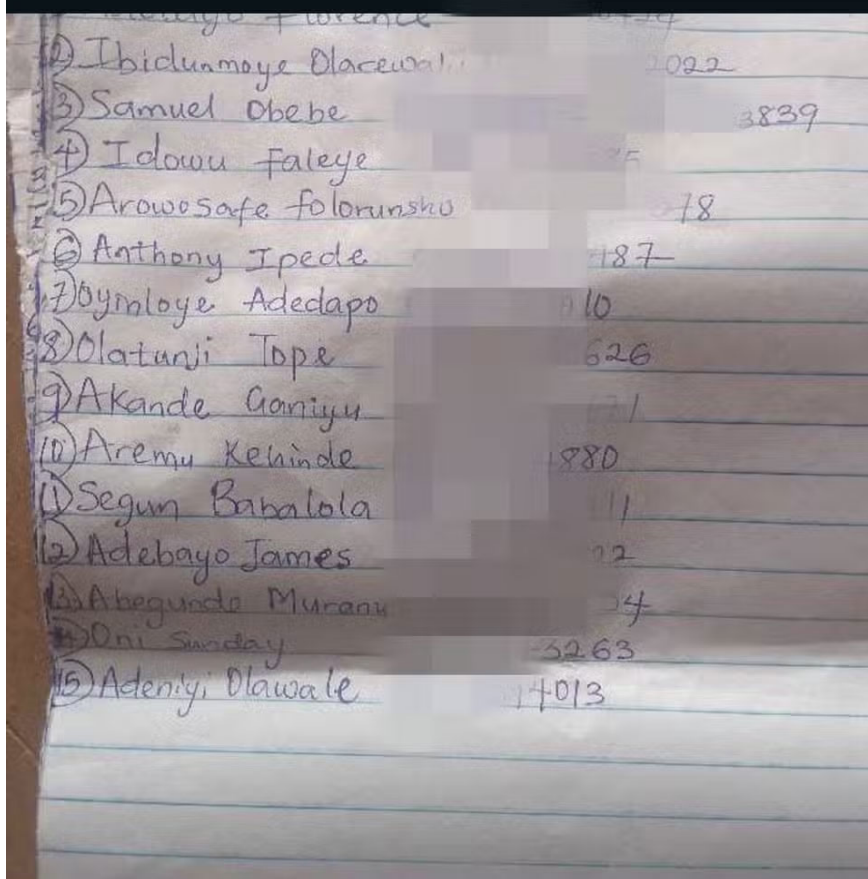 Florence
② Ibidunmoye Olacewali 2022
③ Samuel Obebe 3839
④ Idowu Faleye
⑤ Arowosafe folorunsho 78
⑥ Anthony Ipede 487
⑦ Oyinloye Adedapo 10
⑧ Olatunji Tope 626
⑨ Akande Ganiyu
⑩ Aremu Kehinde 880
⑪ Segun Babalola 11
⑫ Adebayo James 22
⑬ Abegunde Muranu 4
⑭ Oni Sunday 3263
⑮ Adeniyi Olawale 4013